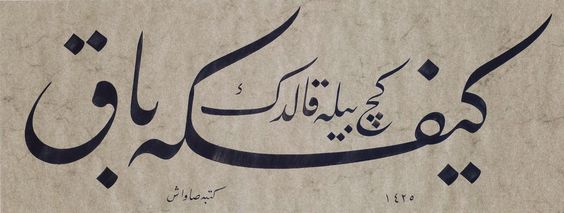 كيفكه باق
كچ بيله قالدك
كتبه صاواش
١٤٢٥